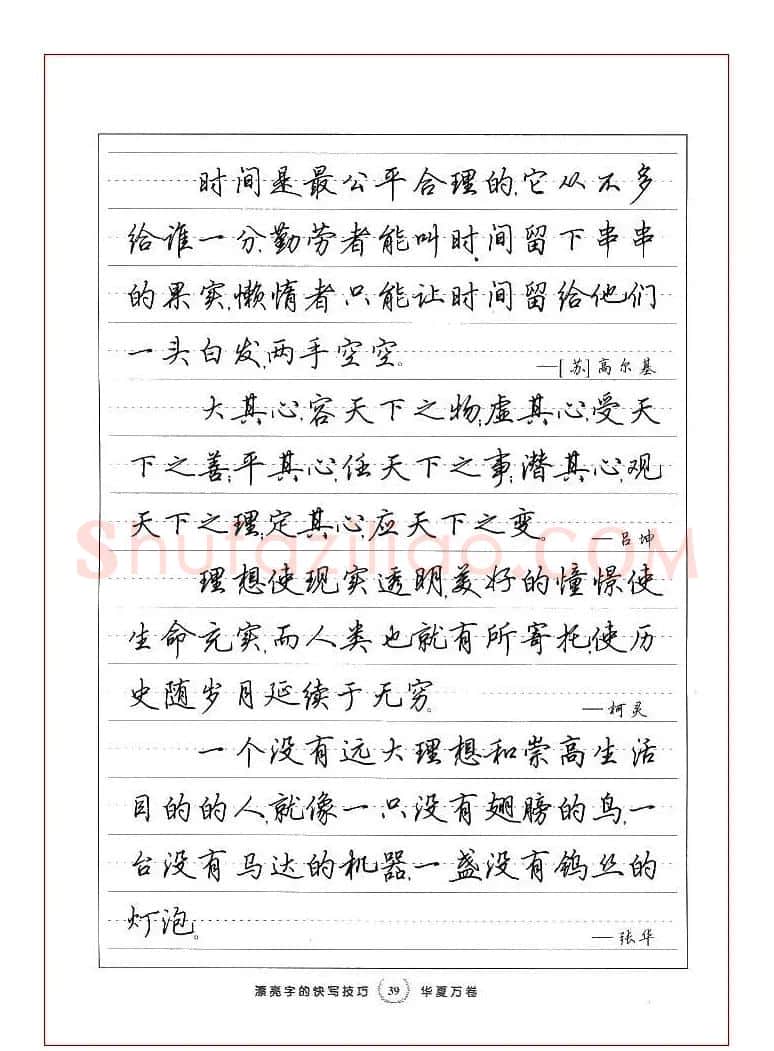 时间是最公平合理的,它从不多
给谁一分,勤劳者能叫时间留下串串
的果实,懒惰者只能让时间留给他们
一头白发,两手空空。
—[苏]高尔基
大其心,容天下之物;虚其心,受天
下之善;平其心,任天下之事;潜其心,观
天下之理;定其心,应天下之变。
—吕坤
理想使现实透明,美好的憧憬使
生命充实,而人类也就有所寄托,使历
史随岁月延续于无穷。
—柯灵
一个没有远大理想和崇高生活
目的的人,就像一只没有翅膀的鸟,一
台没有马达的机器,一盏没有钨丝的
灯泡。
—张华
Shufaziliao.COM
漂亮字的快写技巧 39 华夏万卷